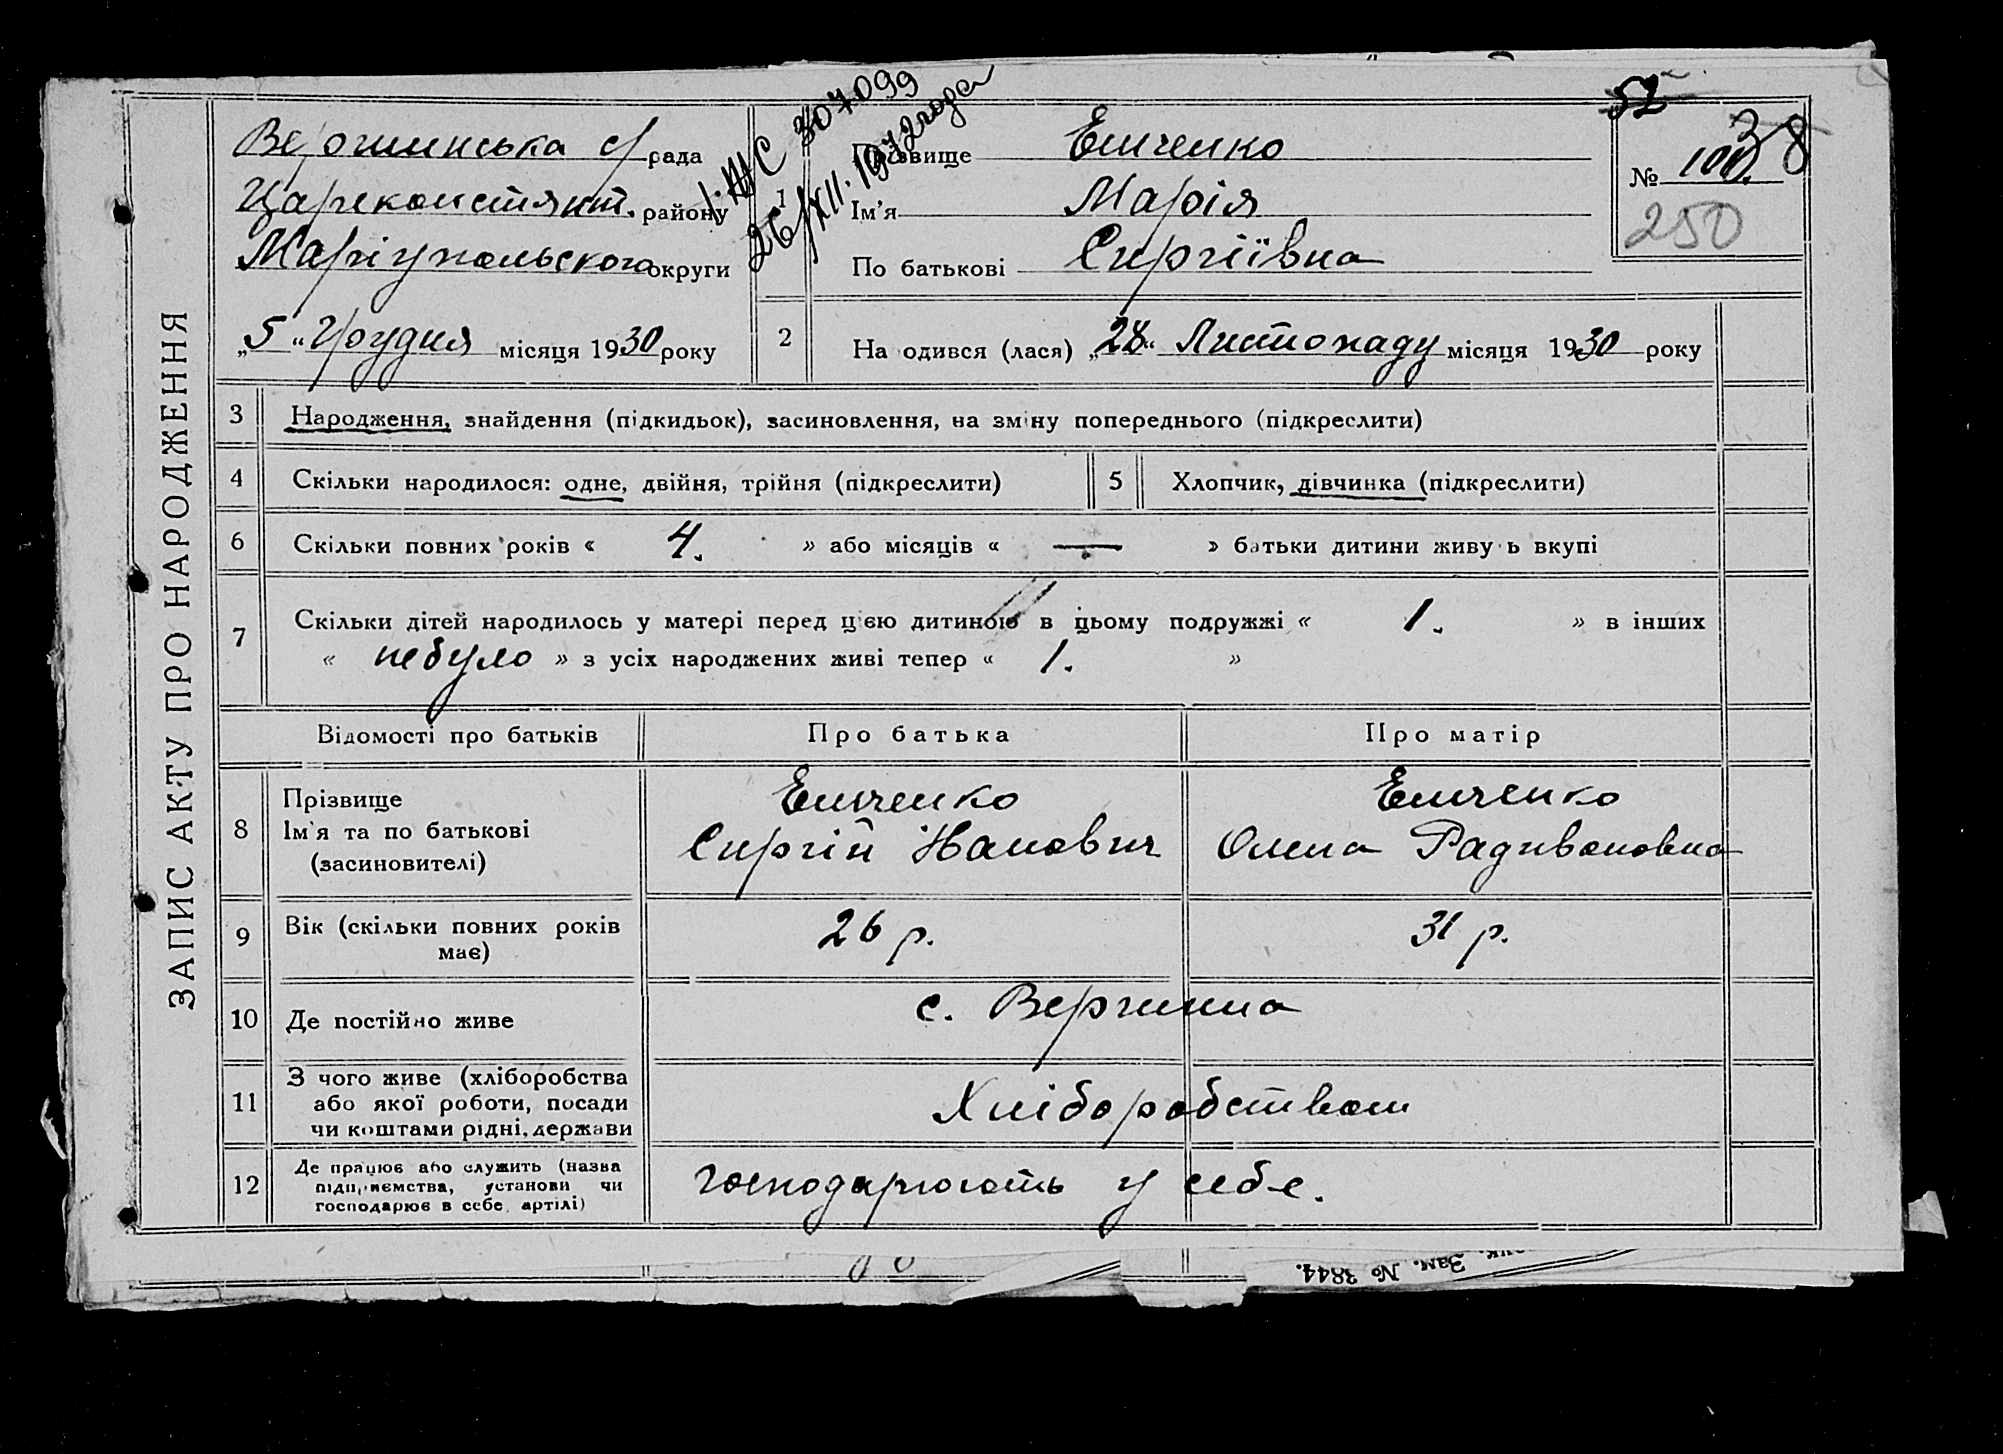 ЗАПИС АКТУ ПРО НАРОДЖЕННЯ
Вершинська с/рада
Царекостянт. району
Маріупольського округи
„5“ Грудня місяця 1930 року
I. ЖС 307099
26/XII. 1972 года
Прізвище Емченко
Ім'я Марія
По батькові Сиргіївна
52
38
№ 100.
250
2 На одився (лася) „28“ Листопаду місяця 1930 року
3 Народження, знайдення (підкидьок), засиновлення, на зміну попереднього (підкреслити)
4 Скільки народилося: одне, двійня, трійня (підкреслити) 5 Хлопчик, дівчинка (підкреслити)
6 Скільки повних років « 4. » або місяців « — » батьки дитини живу ь вкупі
7 Скільки дітей народилось у матері перед цією дитиною в цьому подружжі « 1. » в інших
« небуло » з усіх народжених живі тепер « 1. »
Відомості про батьків Про батька Про матір
8 Прізвище Емченко Емченко
Ім'я та по батькові Сиргій Іванович Олена Радивоновна
(засиновителі)
9 Вік (скільки повних років має) 26 р. 31 р.
10 Де постійно живе с. Вершина
11 З чого живе (хліборобства
або якої роботи, посади Хліборобством
чи коштами рідні, держави
12 Де працює або служить (назва
підприємства, установи чи господарюють у себе.
господарює в себе, артілі)
Зам. № 3844.